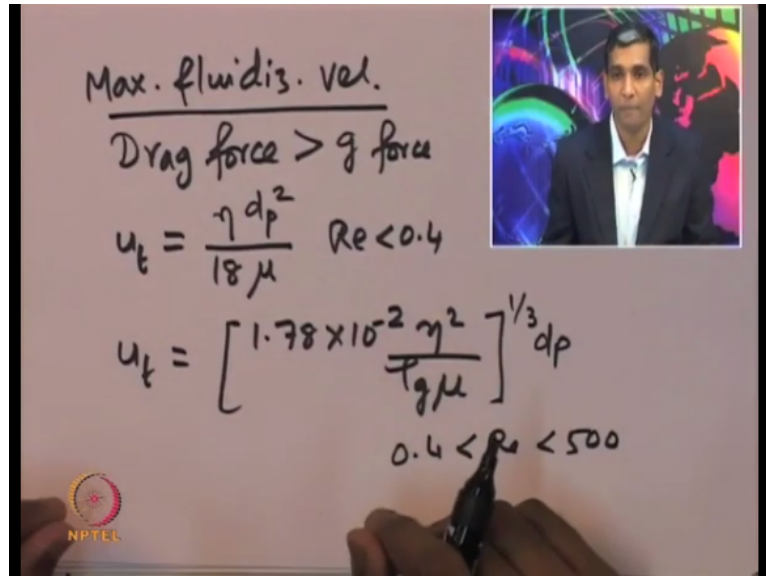 Max. fluidiz. vel.
Drag force > g force
u_t = η dp² / 18 μ Re < 0.4
u_t = [ 1.78 × 10⁻² η² / ρg μ ]^1/3 dp
0.4 < Re < 500
NPTEL